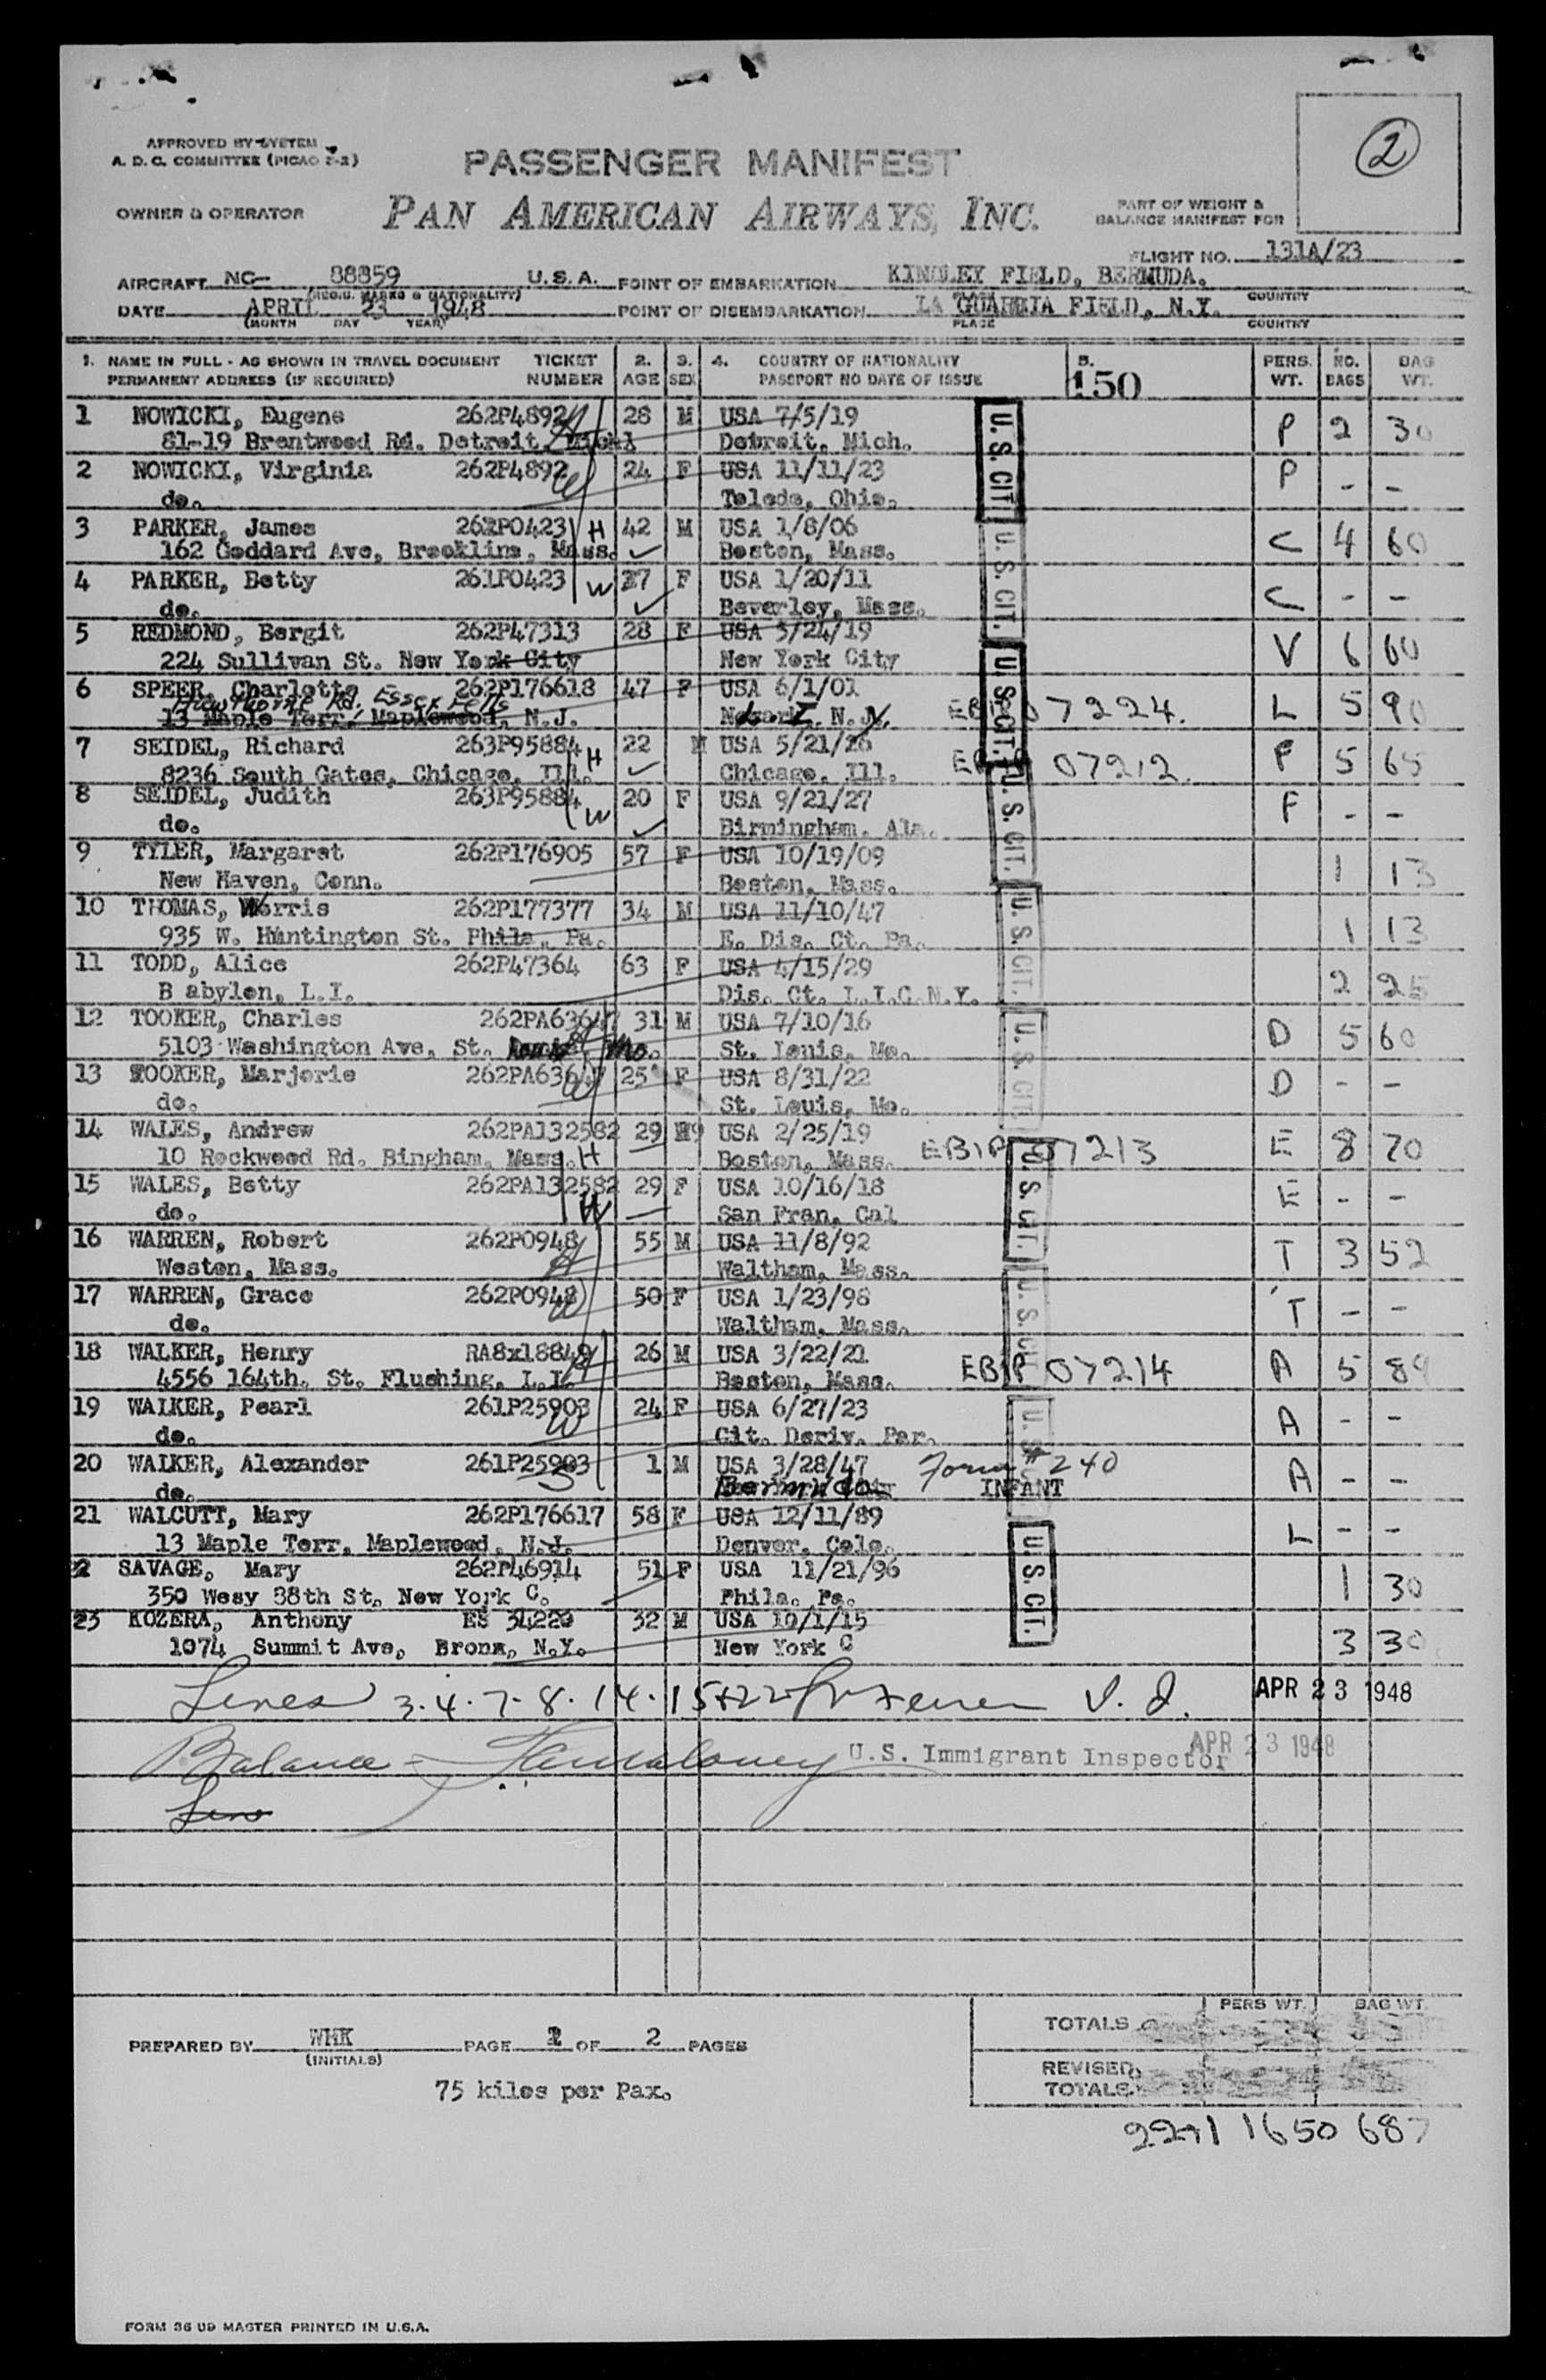 2
APPROVED BY SYSTEM
A. D. C. COMMITTEE (PICAO 2-2)
PASSENGER MANIFEST
OWNER & OPERATOR
PAN AMERICAN AIRWAYS, INC.
PART OF WEIGHT &
BALANCE MANIFEST FOR
FLIGHT NO. 131A/23
AIRCRAFT NC- 88859 U.S.A. POINT OF EMBARKATION KINDLEY FIELD, BERMUDA.
(REGIS. MARKS & NATIONALITY) COUNTRY
DATE APRIL 23 1948 POINT OF DISEMBARKATION LA GUARDIA FIELD, N.Y.
(MONTH DAY YEAR) PLACE COUNTRY
1. NAME IN FULL - AS SHOWN IN TRAVEL DOCUMENT TICKET 2. 3. 4. COUNTRY OF NATIONALITY 5. PERS. NO. BAG
PERMANENT ADDRESS (IF REQUIRED) NUMBER AGE SEX PASSPORT NO DATE OF ISSUE 150 WT. BAGS WT.
1 NOWICKI, Eugene 262P4892 28 M USA 7/5/19 U.S. CIT. P 2 30
81-19 Brentwood Rd. Detroit, Mich. Detroit, Mich.
2 NOWICKI, Virginia 262P4892 W 24 F USA 11/11/23 P - -
do. Toledo, Ohio.
3 PARKER, James 261P0423 H 42 M USA 1/8/06 U. S. CIT. C 4 60
162 Goddard Ave, Brookline, Mass. Boston, Mass.
4 PARKER, Betty 261P0423 W 37 F USA 1/20/11 C - -
do. Beverley, Mass.
5 REDMOND, Bergit 262P47313 28 F USA 5/24/19 U. S. CIT. V 6 60
224 Sullivan St. New York City New York City
6 SPEER, Charlotte 262P176618 47 F USA 6/1/01 EBIP 07224. L 5 90
Hawthorne Rd. Essex Fells
13 Maple Terr, Maplewood, N.J. Newark, N.J.
7 SEIDEL, Richard 263P95884 H 22 M USA 5/21/26 EBIP 07212. F 5 65
8236 South Gates, Chicago, Ill. Chicago, Ill.
8 SEIDEL, Judith 263P95884 W 20 F USA 9/21/27 U. S. CIT. F - -
do. Birmingham, Ala.
9 TYLER, Margaret 262P176905 57 F USA 10/19/09 1 13
New Haven, Conn. Boston, Mass.
10 THOMAS, Morris 262P177377 34 M USA 11/10/47 U. S. CIT. 1 13
935 W. Huntington St. Phila, Pa. E. Dis. Ct. Pa.
11 TODD, Alice 262P47364 63 F USA 4/15/29 2 25
B abylon, L.I. Dis. Ct. L.I.C.N.Y.
12 TOOKER, Charles 262PA63647 31 M USA 7/10/16 U. S. CIT. D 5 60
5103 Washington Ave, St. Louis, Mo. St. Louis, Mo.
13 TOOKER, Marjorie 262PA63647 W 25 F USA 8/31/22 D - -
do. St. Louis, Mo.
14 WALES, Andrew 262PA132582 29 M USA 2/25/19 EBIP 07213 E 8 70
10 Rockwood Rd. Bingham, Mass. H Boston, Mass.
15 WALES, Betty 262PA132582 29 F USA 10/16/18 U. S. CIT. E - -
do. W San Fran, Cal
16 WARREN, Robert 262P0948 H 55 M USA 11/8/92 T 3 52
Weston, Mass. Waltham, Mass.
17 WARREN, Grace 262P0948 W 50 F USA 1/23/98 U. S. CIT. T - -
do. Waltham, Mass.
18 WALKER, Henry RA8x18849 H 26 M USA 3/22/21 EBIP 07214 A 5 89
4556 164th. St. Flushing, L.I. Boston, Mass.
19 WALKER, Pearl 261P25903 W 24 F USA 6/27/23 A - -
do. Cit. Deriv. Par.
20 WALKER, Alexander 261P25903 S 1 M USA 3/28/47 Form # 240 A - -
do. Bermuda INFANT
21 WALCUTT, Mary 262P176617 58 F USA 12/11/89 L - -
13 Maple Terr, Maplewood, N.J. Denver, Colo.
22 SAVAGE, Mary 262P46914 51 F USA 11/21/96 U. S. CIT. 1 30
350 Wesy 38th St, New York C. Phila. Pa.
23 KOZERA, Anthony ES 34220 32 M USA 10/1/15 3 30
1074 Summit Ave, Bronx, N.Y. New York C
Lines 3.4.7.8.14.15+22 APR 23 1948
Balance - U.S. Immigrant Inspector APR 23 1948
Line
PERS WT. BAG WT.
TOTALS
PREPARED BY WHK PAGE 2 OF 2 PAGES
(INITIALS)
REVISED
TOTALS
75 kilos per Pax.
1650 687
FORM 36 UD MASTER PRINTED IN U.S.A.